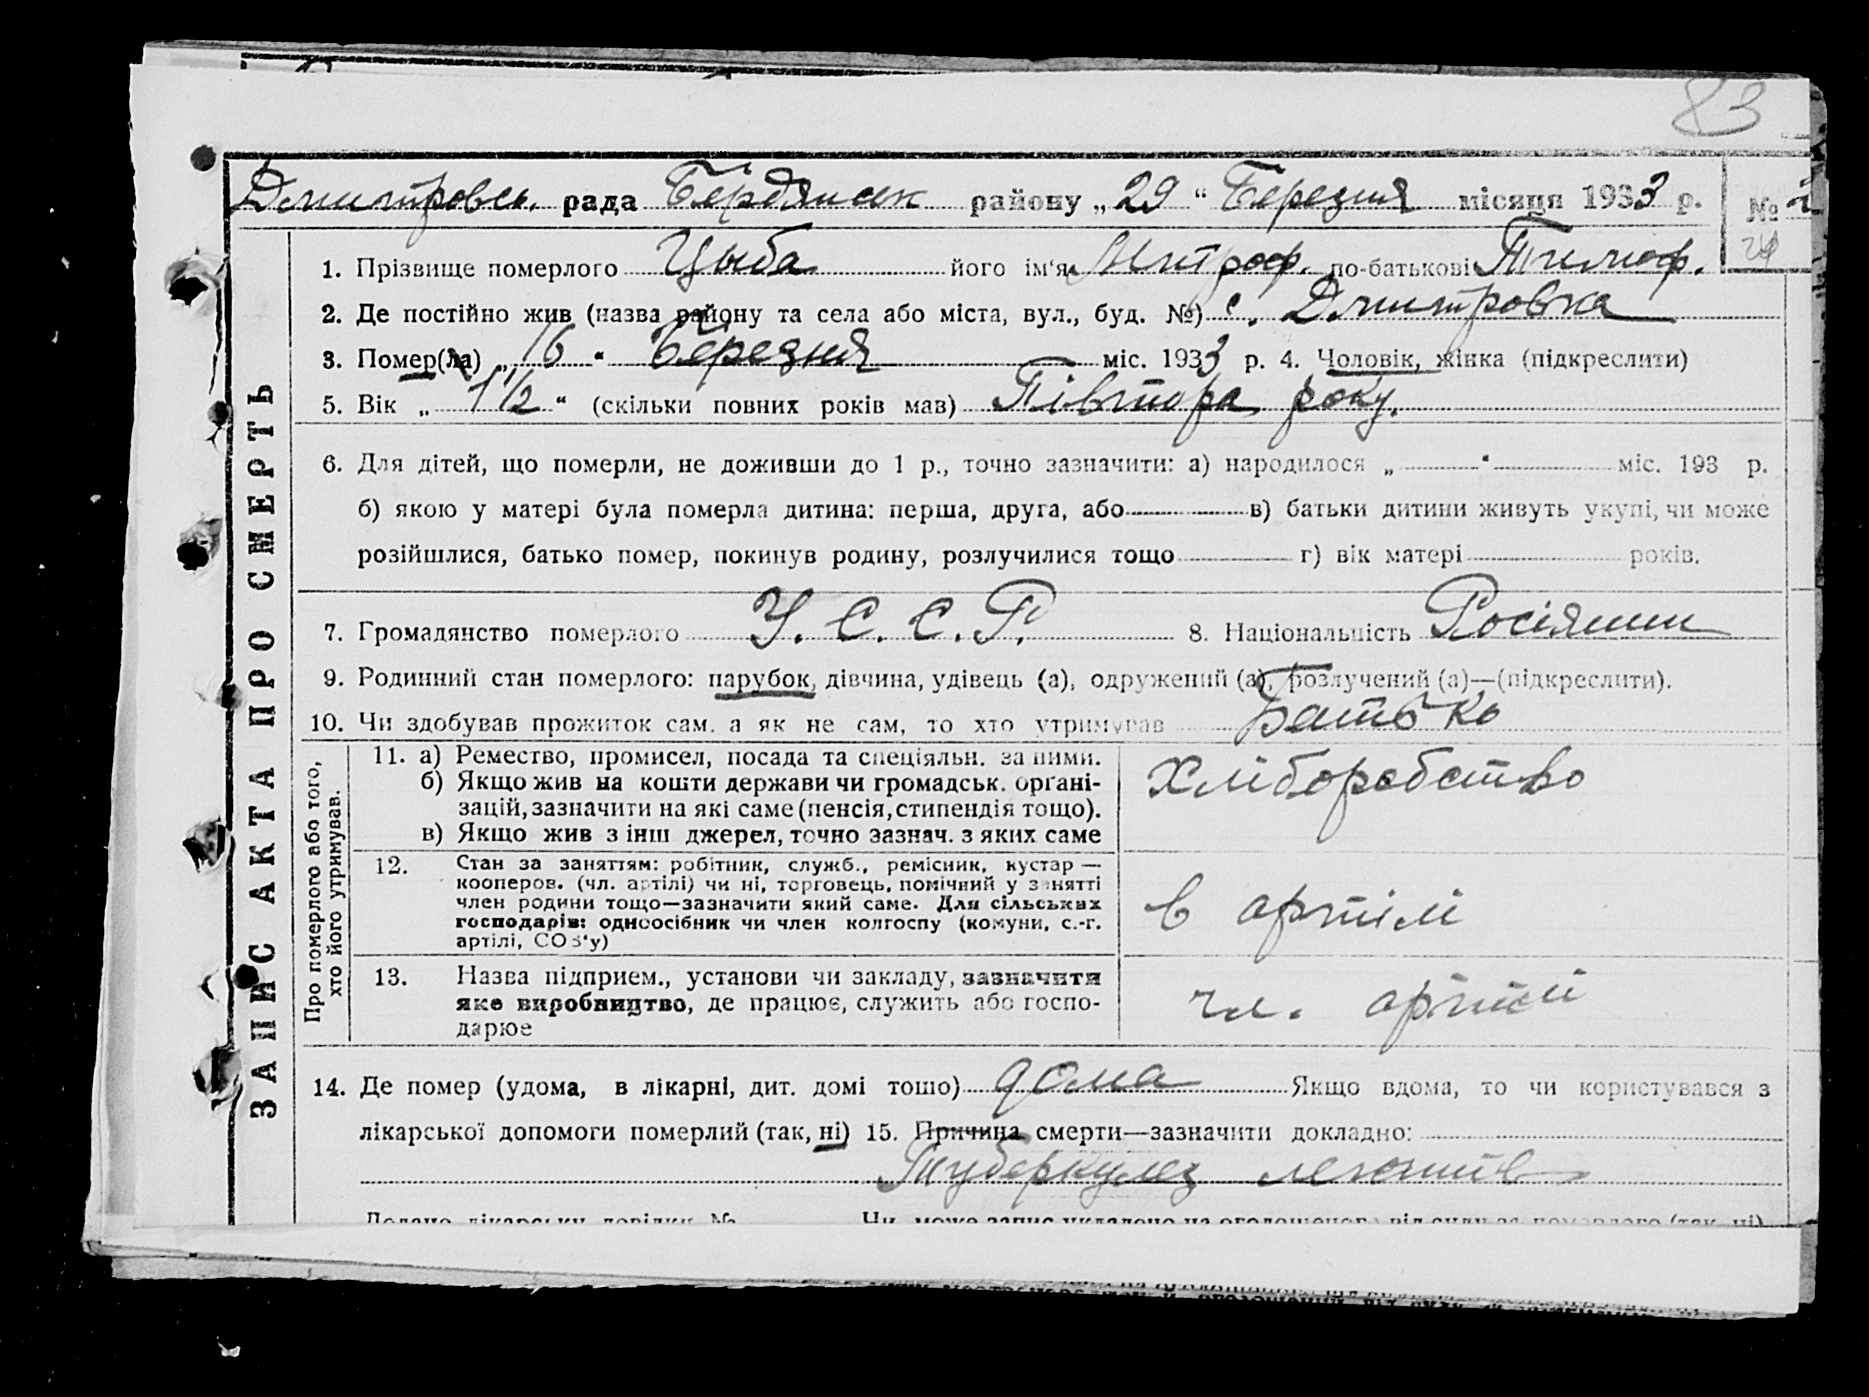 83
Дмитровсь. рада Бердянськ району „29“ Березня місяця 1933 р. №
1. Прізвище померлого Цыба його ім'я Митроф. по-батькові Тимоф.
2. Де постійно жив (назва району та села або міста, вул., буд. №) с. Дмитровка
3. Помер(ла) „16“ Березня міс. 1933 р. 4. Чоловік, жінка (підкреслити)
5. Вік „1 1/2“ (скільки повних років мав) Півтора року.
6. Для дітей, що померли, не доживши до 1 р., точно зазначити: а) народилося „ “ міс. 193 р.
б) якою у матері була померла дитина: перша, друга, або в) батьки дитини живуть укупі, чи може
розійшлися, батько помер, покинув родину, розлучилися тощо г) вік матері років.
7. Громадянство померлого У. С. С. Р. 8. Національність Росіянин
9. Родинний стан померлого: парубок, дівчина, удівець (а), одружений (а), розлучений (а)—(підкреслити).
10. Чи здобував прожиток сам, а як не сам, то хто утримував Батько
ЗАПИС АКТА ПРО СМЕРТЬ
Про померлого або того,
хто його утримував.
11. а) Ремество, промисел, посада та спеціяльн. за ними.
б) Якщо жив на кошти держави чи громадськ. орґані-
зацій, зазначити на які саме (пенсія, стипендія тощо).
в) Якщо жив з інш джерел, точно зазнач. з яких саме
Хліборобство
12. Стан за заняттям: робітник, служб., ремісник, кустар —
кооперов. (чл. артілі) чи ні, торговець, помічний у занятті
член родини тощо—зазначити який саме. Для сільських
господарів: одноосібник чи член колгоспу (комуни, с.-г.
артілі, СОЗ'у)
в артілі
13. Назва підприєм., установи чи закладу, зазначити
яке виробництво, де працює, служить або госпо-
дарює
чл. артілі
14. Де помер (удома, в лікарні, дит. домі тощо) дома Якщо вдома, то чи користувався з
лікарської допомоги померлий (так, ні) 15. Причина смерти—зазначити докладно:
Туберкулез легенів